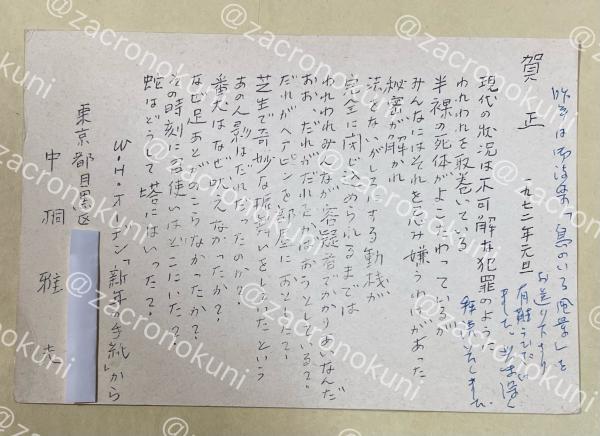 賀正
一九七二年元旦
昨年は御詩集「鳥のいる風景」を
お送り下さり
有難うございました
現代の状況は不可解な犯罪のように
われわれを取巻いている
半裸の死体がよこたわっているが
みんなにはそれを忌み嫌うわけがあった
秘密が解かれ
法をないがしろにする動機が
完全に閉じ込められるまでは
われわれみんなが容疑者でかかりあいなんだ
おお、だれがだれをかばおうとしている?
だれがヘアピンを部屋におとした?
芝生で奇妙な振舞いをしていたという
あの人影はだれだったのか?
番犬はなぜ吠えなかったか?
なぜ足あとがのこらなかったか?
その時刻に召使いはどこにいた?
蛇はどうして塔にはいった?
W・H・オーデン「新年の手紙」から
東京都目黒区
中桐雅夫
@zacronokuni
@zacronokuni
@zacronokuni
@zacronokuni
@zacronokuni
@zacronokuni
@zacronokuni
@zacronokuni